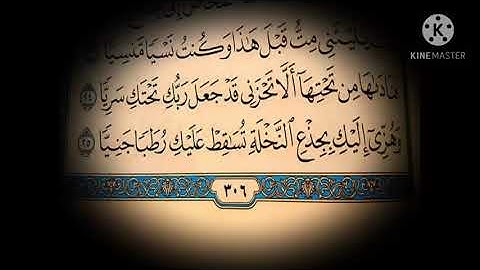 يَٰلَيْتَنِى مِتُّ قَبْلَ هَٰذَا وَكُنتُ نَسْيًا مَّنسِيًّا
فَنَادَىٰهَا مِن تَحْتِهَآ أَلَّا تَحْزَنِى قَدْ جَعَلَ رَبُّكِ تَحْتَكِ سَرِيًّا ٢٤
وَهُزِّىٓ إِلَيْكِ بِجِذْعِ ٱلنَّخْلَةِ تُسَٰقِطْ عَلَيْكِ رُطَبًا جَنِيًّا ٢٥
٣٠٦
K
KINEMASTER